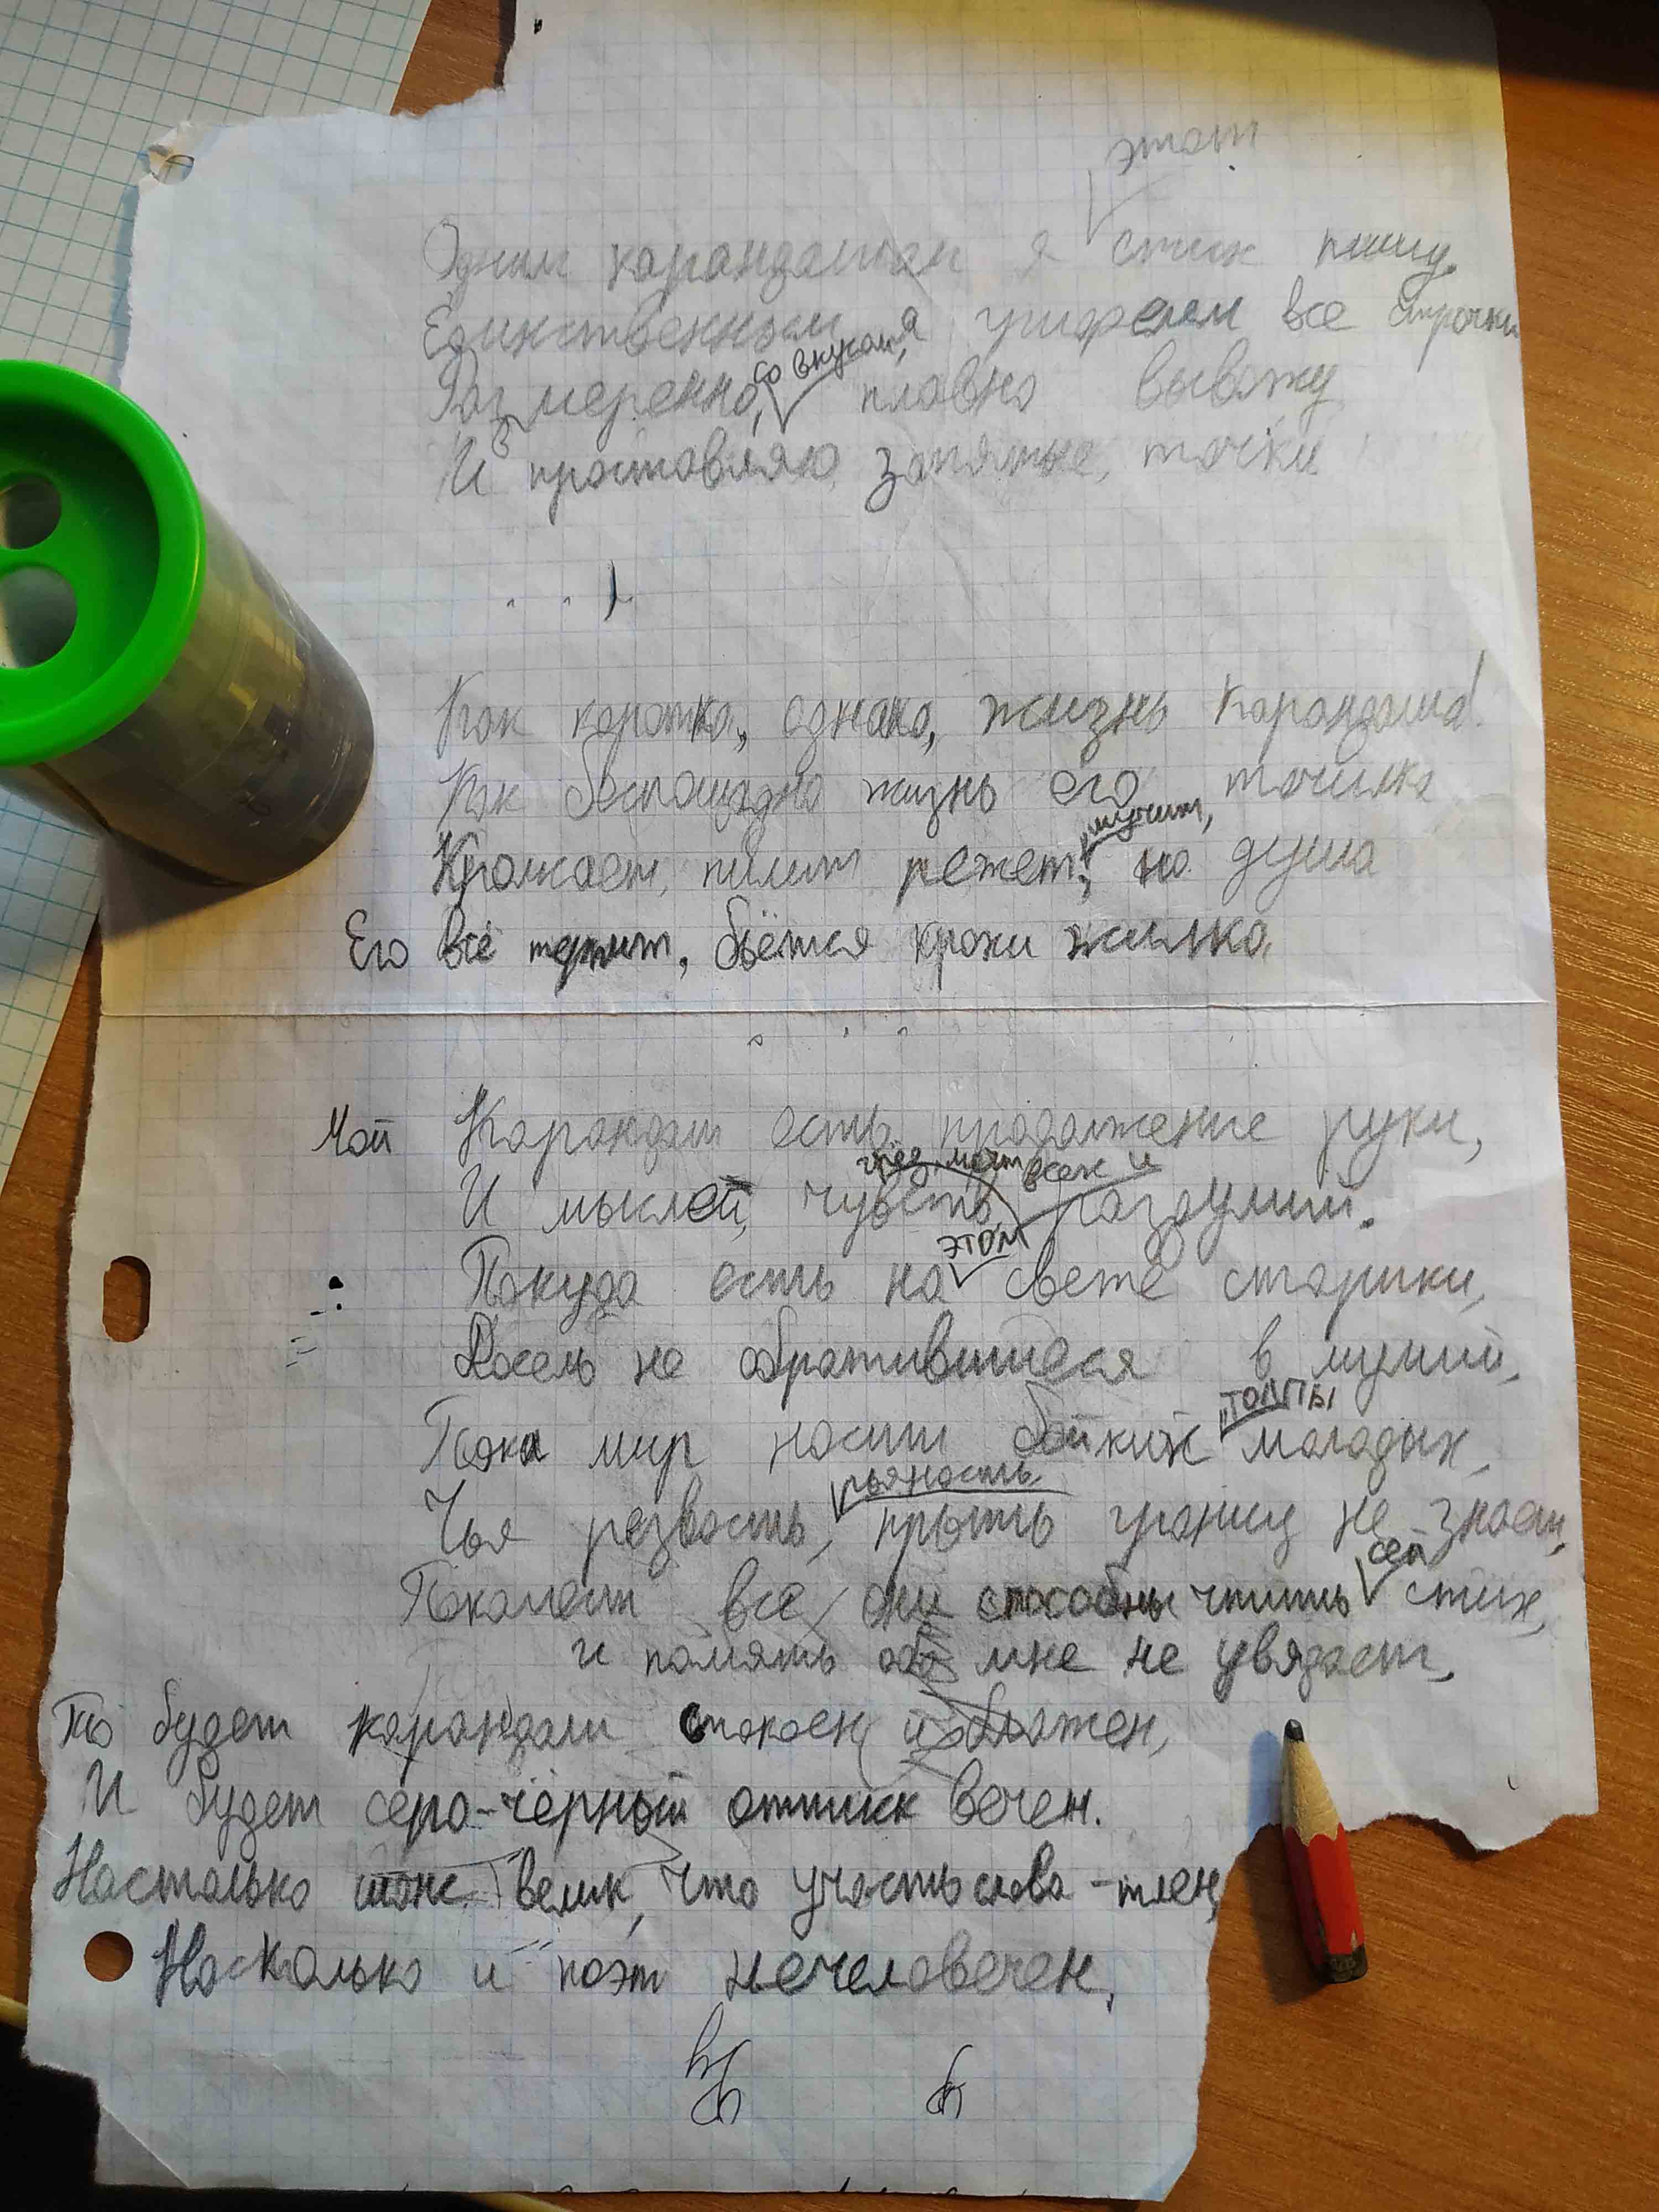 этот
Одним карандашом я стих пишу.
Единственным грифелем все строчки
со вкусом я
Размеренно, плавно вывожу
И проставляю запятые, точки
Как коротка, однако, жизнь карандаша!
Как беспощадно жизнь его точилка
мучит,
Кромсает, пилит, режет, но душа
Его всё терпит, бьётся крохи жилка.
Мой Карандаш есть продолжение руки,
всех и
И мыслей, чувств, раздумий.
этом
Покуда есть на свете старики,
Досель не обратившиеся в мумий,
толпы
Пока мир носит бойких молодых,
рьяность
Чья резвость, прыть границ не знает,
сей
Покамест все они способны чтить стих,
и память обо мне не увядает,
То будет карандаш спокоен и блажен,
И будет серо-чёрный оттиск вечен.
Настолько шанс велик, что участь слова - тлен,
Насколько и поэт нечеловечен.